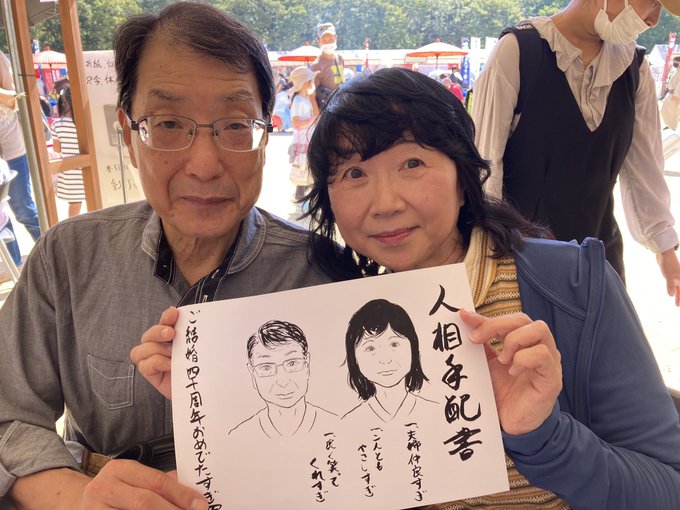 人相手配書
一夫婦仲良すぎ
一二人とも
やさしすぎ
一良く笑って
くれすぎ
ご結婚四十周年おめでたすぎ